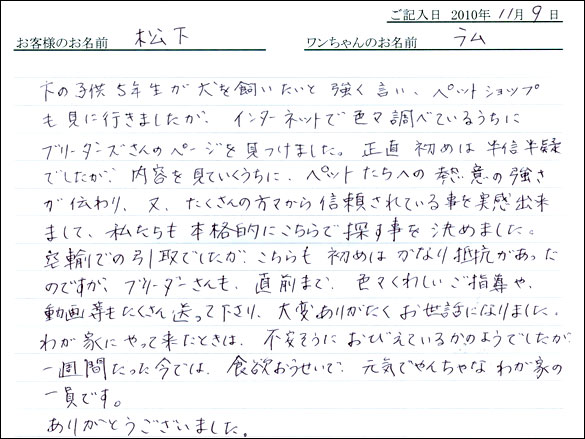 ご記入日 2010年 11月 9日
お客様のお名前 松下 ワンちゃんのお名前 ラム
下の子供5年生が犬を飼いたいと強く言い、ペットショップ
も見に行きましたが、インターネットで色々調べているうちに
ブリーダーズさんのページを見つけました。正直初めは半信半疑
でしたが、内容を見ていくうちに、ペットたちへの熱意の強さ
が伝わり、又、たくさんの方々から信頼されている事を実感出来
まして、私たちも本格的にこちらで探す事を決めました。
空輸での引取でしたが、こちらも初めはかなり抵抗があった
のですが、ブリーダーさんも、直前まで、色々くわしいご指導や、
動画等もたくさん送って下さり、大変ありがたくお世話になりました。
わが家にやって来たときは、不安そうにおびえているかのようでしたが
一週間たった今では、食欲おうせいで、元気でやんちゃなわが家の
一員です。
ありがとうございました。